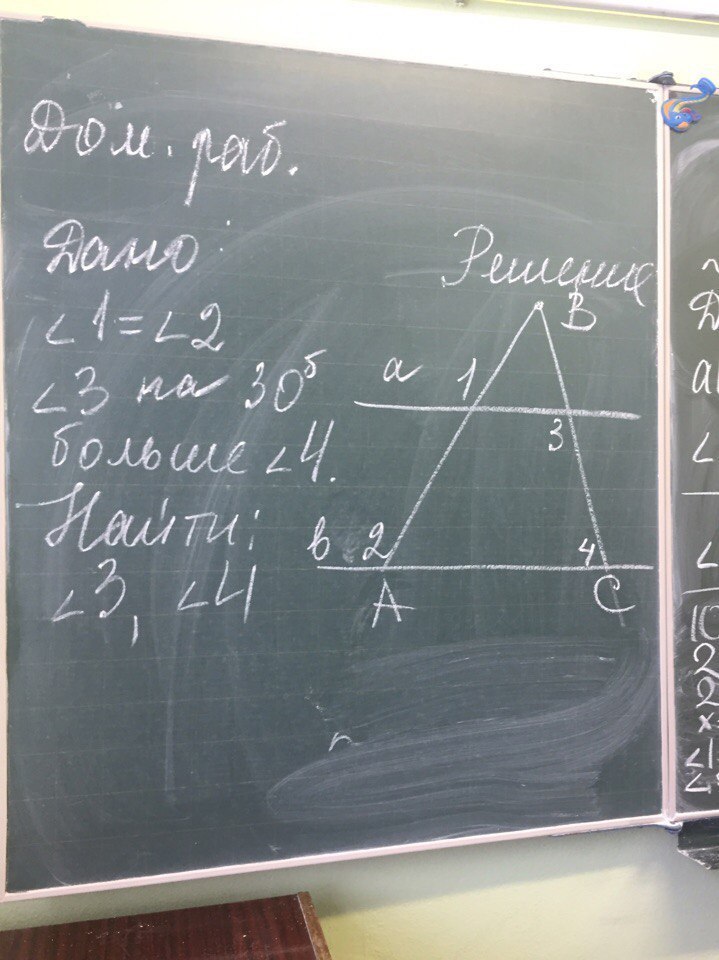 Дом. раб.
Дано:
∠1 = ∠2
∠3 на 30°
больше ∠4.
Найти:
∠3, ∠4
Решение
B
a 1
3
в 2 4
A C